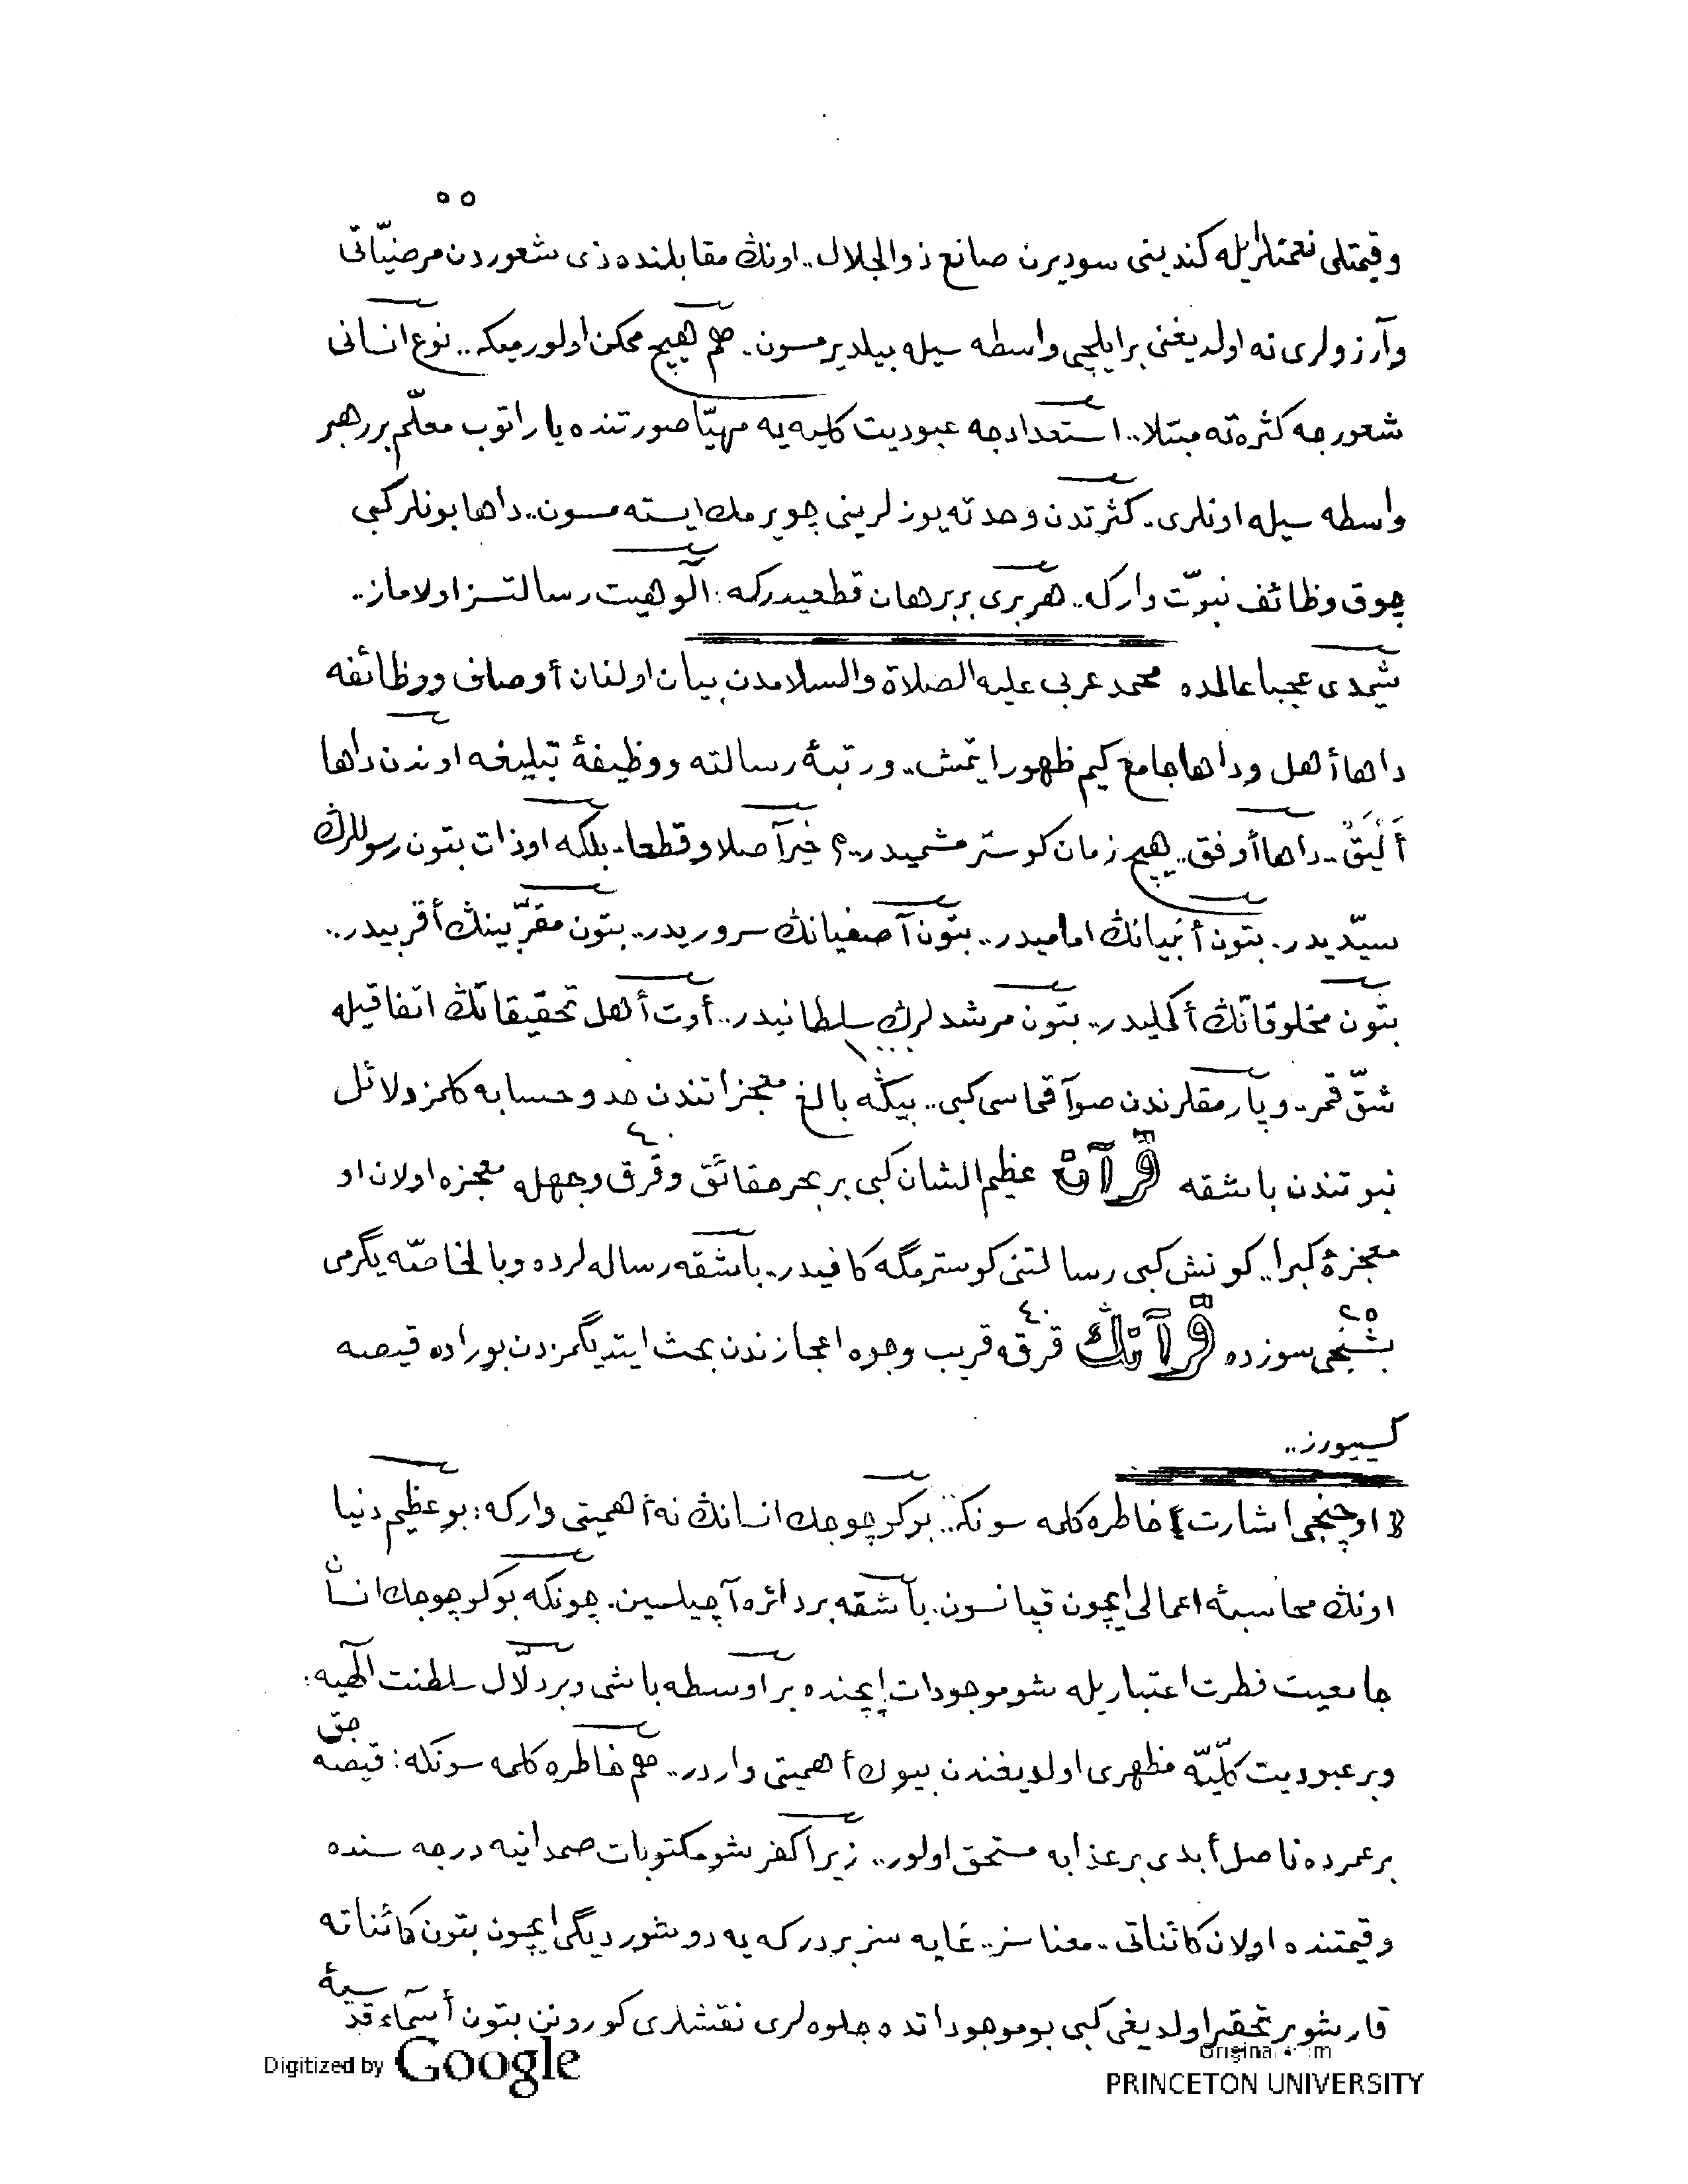 ٥٥
وقيمتلى نعمتلرايله كندينى سوديرن صانع ذوالجلال.. اونك مقابلنده ذى شعوردن مرضيّاتى
وآرزولرى نه اولديغنى برايلچى واسطه سيله بيلديرمسون.. هم هيچ ممكن اولورميكه.. نوع انسانى
شعورجه كثرته مبتلا.. استعدادجه عبوديت كليه يه مهيّا صورتنده ياراتوب معلّم بررهبر
واسطه سيله اونلرى.. كثرتدن وحدته يوزلرينى چويرمك ايسته مسون.. داها بونلركبى
چوق وظائف نبوّت واركه.. هربرى بربرهان قطعيدركه: الوهيت رسالتسز اولاماز..
شيمدى عجبا عالمده محمد عربى عليه الصلاة والسلامدن بيان اولنان أوصاف ووظائفه
داها أهل وداها جامع كيم ظهور ايتمش.. ورتبۀ رسالته ووظيفۀ تبليغه اوندن داها
أَليَقْ.. داها أوفق.. هيچ زمان كوسترمشميدر..؟ خير آصلا وقطعا.. بلكه اوذات بتون رسوللرڭ
سيّديدر.. بتون أنبيانڭ اماميدر.. بتون آصفيانڭ سروريدر.. بتون مقرّبينڭ أقربيدر..
بتون مخلوقاتڭ أكمليدر.. بتون مرشدلرڭ سلطانيدر.. أوت أهل تحقيقاتڭ اتفاقيله
شقّ قمر.. وپارمقلرندن صو آقماسى كبى.. بيڭه بالغ معجزاتندن حد وحسابه كلمز دلائل
١٠٠٠
نبوتندن باشقه قرآن عظيم الشان كبى بر بحر حقائق وقرق وجهله معجزه اولان او
٤٠
معجزۀ كبرا.. كونش كبى رسالتنى كوسترمگه كافيدر.. باشقه رساله لرده وبالخاصّه يگرمى
٢٥ ٤٠
بشنجى سوزده قرآنڭ قرقه قريب وجوه اعجازندن بحث ايتديگمزدن بوراده قيصه
كسييورز..
[اوچنجى اشارت] خاطره كلمه سونكه.. بوكوچوجك انسانڭ نه أهميتى واركه: بوعظيم دنيا
اونڭ محاسبۀ اعمالى ايچون قپانسون. باشقه بر دائره آچيلسين. چونكه بوكوچوجك انسان
جامعيت فطرت اعتباريله شوموجودات ايچنده بر اوسطه باشى وبر دلّال سلطنت الٓهيه:
وبر عبوديت كلّيّه مظهرى اولديغندن بيوك أهميتى واردر.. هم خاطره كلمه سونكه: قيصه جق
بر عمرده ناصل أبدى بر عذابه مستحق اولور.. زيرا كفر شومكتوبات صمدانيه درجه سنده
وقيمتنده اولان كائناتى.. معناسز.. غايه سز بر دركه يه دوشورديگى ايچون بتون كائناته
قارشو بر تحقير اولديغى كبى بوموجوداتده جلوه لرى نقشلرى كورونن بتون أسماء قدسيۀ
Digitized by Google
Original from
PRINCETON UNIVERSITY